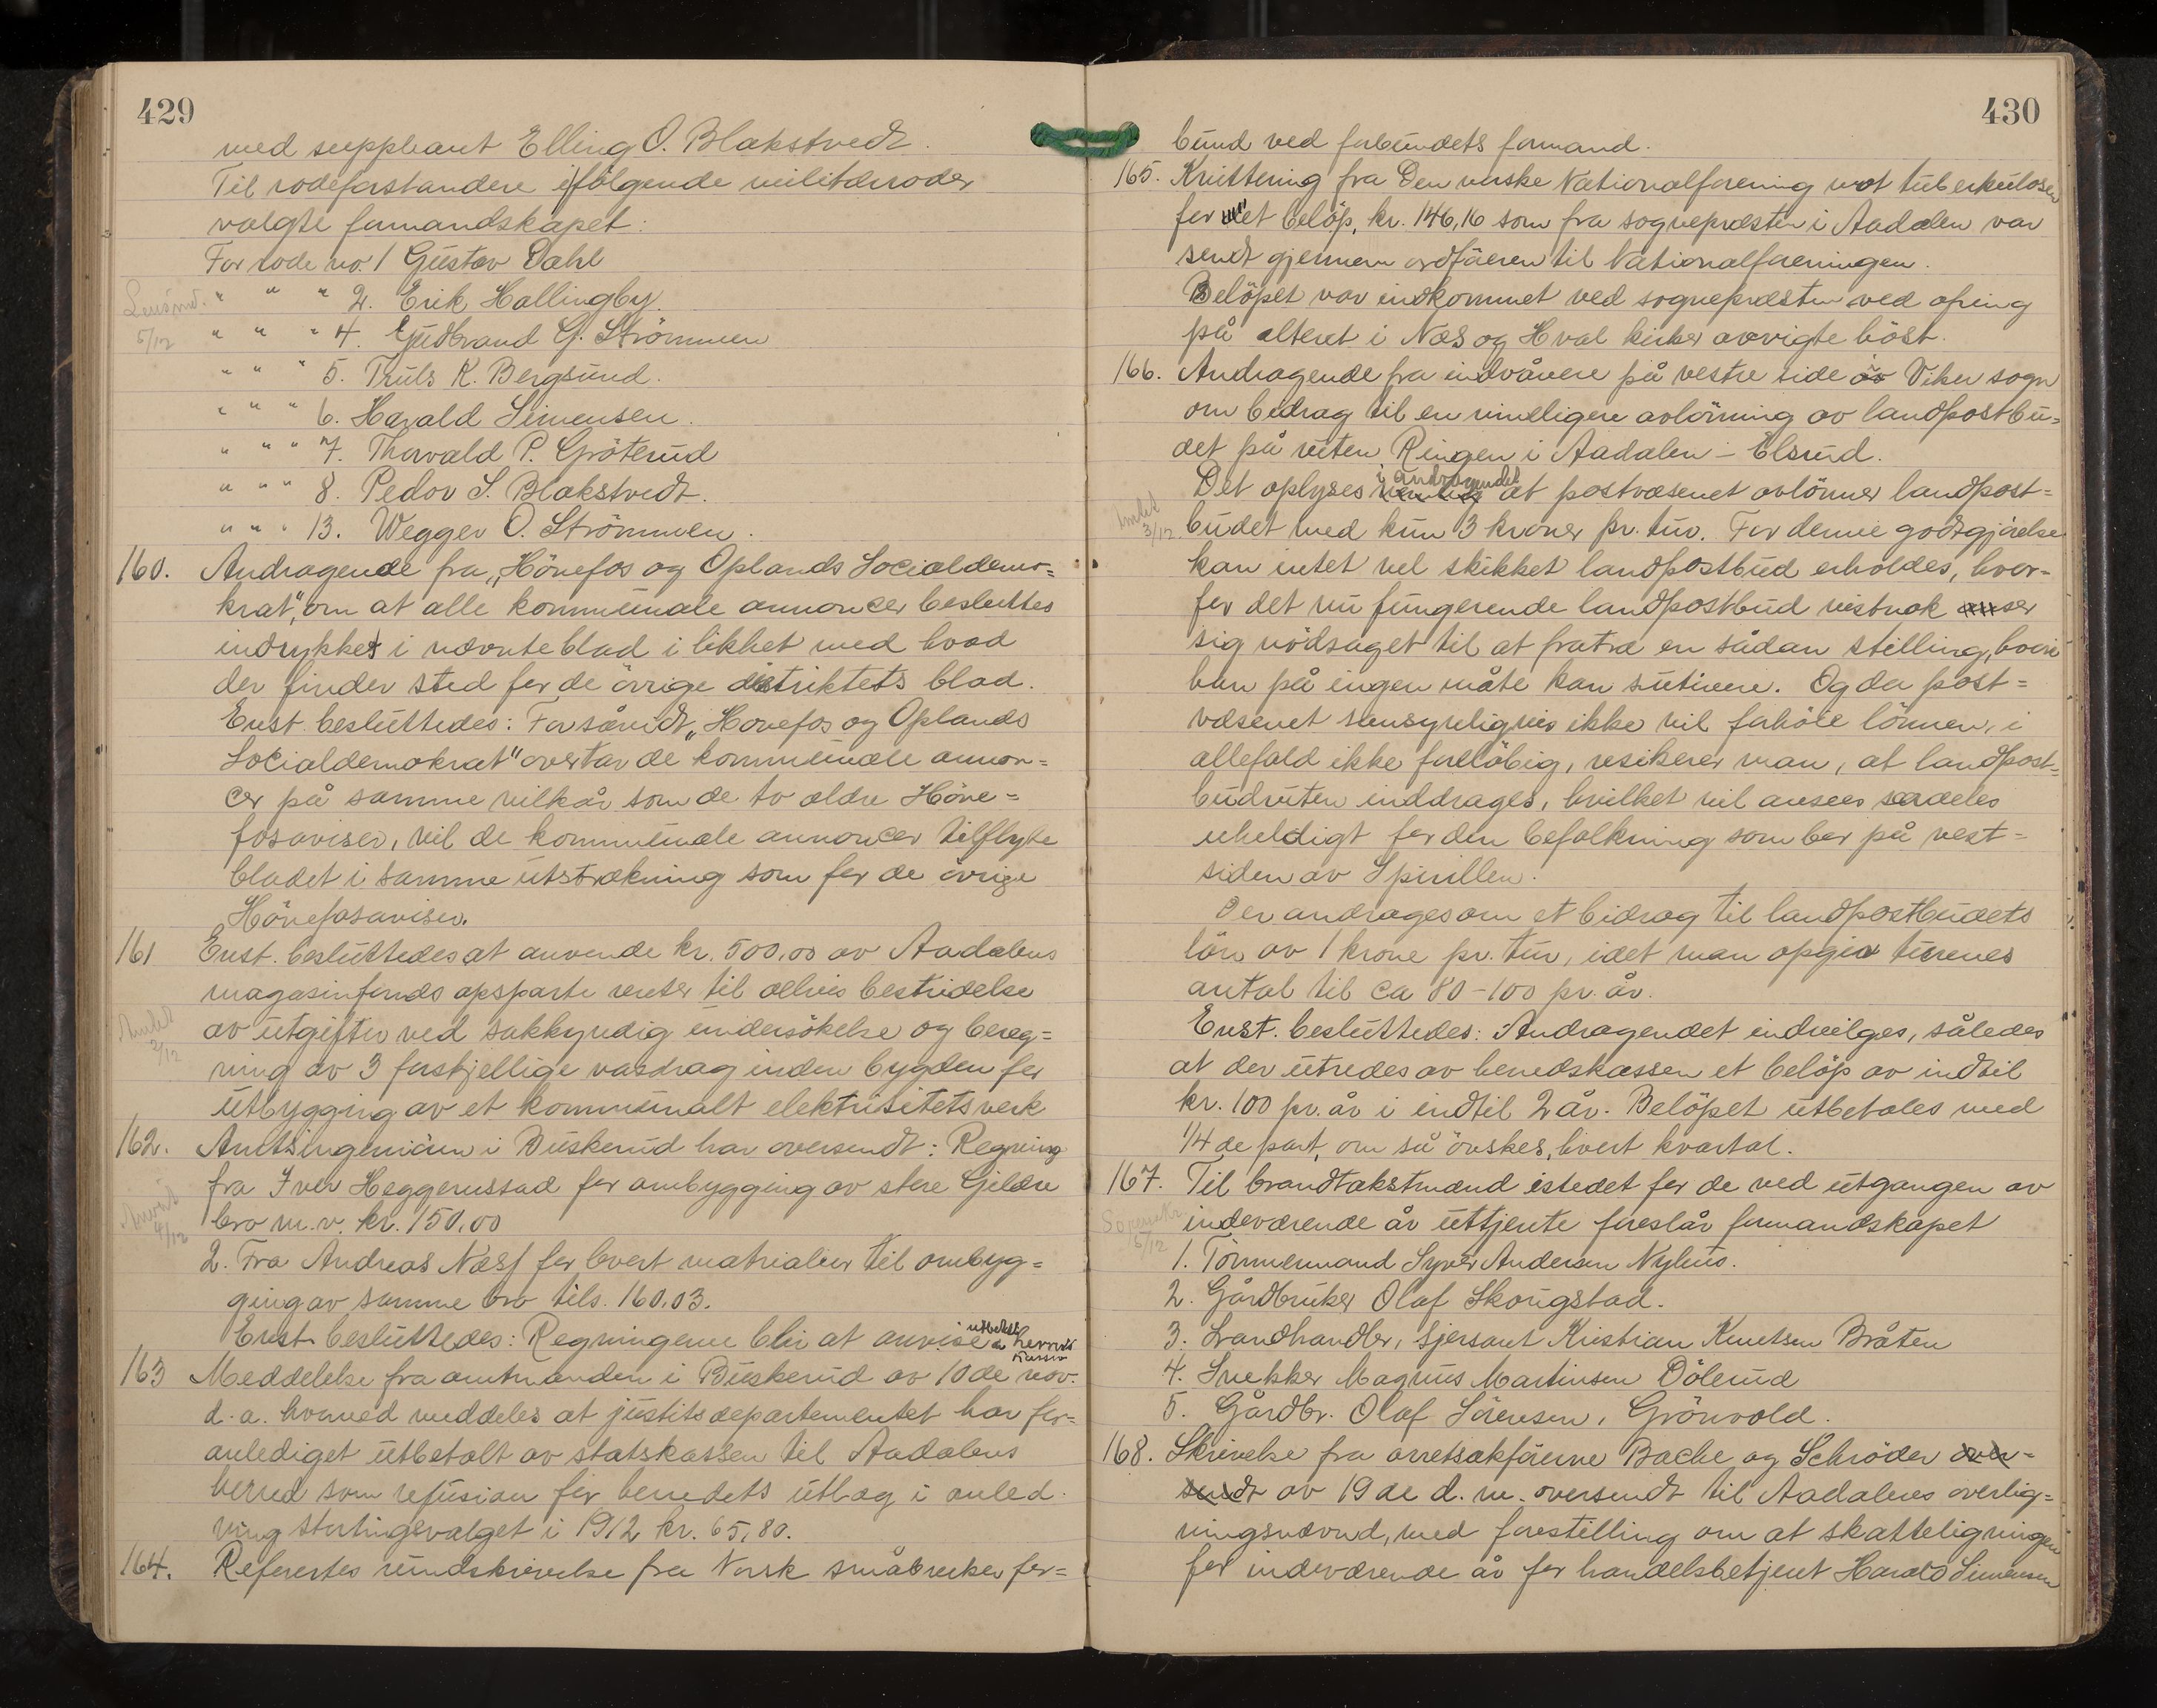 429
med suppleant Elling O. Blakstvedt.
Til rodeforstandere i følgende militærroder
valgte formandskapet:
For rode no. 1 Gustav Dahl
Lensmd. " " " 2. Erik Hallingby.
5/12 " " " 4. Gudbrand G. Strömmen
" " " 5. Truls K. Bergsund.
" " " 6. Harald Simensen.
" " " 7. Thorvald P. Gröterud
" " " 8. Pedor S. Blakstvedt.
" " " 13. Wegger O. Strömmen.
160. Andragende fra „Hönefos og Oplands Socialdemo-
krat", om at alle kommunale annoncer besluttes
indrykket i nævnte blad i likhet med hvad
der finder sted for de övrige distriktets blad.
Enst. besluttedes: Forsåvidt „Hönefos og Oplands
Socialdemokrat" overtar de kommunale annon-
cer på samme vilkår som de to ældre Höne-
fosaviser, vil de kommunale annoncer tilflyte
bladet i samme utstrækning som for de övrige
Hönefosaviser.
161 Enst. besluttedes at anvende kr. 500,00 av Aadalens
magasinfonds opsparte renter til delvis bestridelse
Amtet 2/12 av utgifter ved sakkyndig undersökelse og bereg-
ning av 3 forskjellige vasdrag inden bygden for
utbygging av et kommunalt elektrisitetsverk
162. Amtsingeniören i Buskerud har oversendt: Regning
fra Iver Heggerustad for ombygging av store Gjeldre
Anvist 4/12 bro m.v. kr. 150,00
2. Fra Andreas Næss for levert matrialer til ombyg-
ging av samme bro tils. 160.03.
Enst. besluttedes: Regningene blir at anvise utbetalt av herreds
kassen
163 Meddelelse fra amtmanden i Buskerud av 10de nov.
d.a. hvorved meddeles at justitsdepartementet har for-
anlediget utbetalt av statskassen til Aadalens
herred som refusion for herredets utlæg i anled-
ning stortingsvalget i 1912 kr. 65,80.
164. Refertes rundskrivelse fra Norsk småbruker for-
430
bund ved forbundets formand.
165. Kvittering fra Den norske Nationalforening mot tuberkulosen
for et belöp, kr. 146,16 som fra sogneprästen i Aadalen var
sendt gjennem ordföreren til Nationalforeningen.
Belöpet var indkommet ved sogneprästen ved ofring
på alteret i Næs og Hval kirker avvigte höst.
166. Andragende fra indvånere på vestre side av Viker sogn
om bidrag til en rimeligere avlönning av landpostbu-
det på ruten Ringen i Aadalen – Elsrud.
Det oplyses i andragendet at postvæsenet avlönner landpost-
Amtet 3/12 budet med kun 3 kroner pr. tur. For denne godtgjörelse
kan intet vel skikket landpostbud erholdes, hvor-
for det nu fungerende landpostbud vistnok ser
sig nödsaget til at fratræ en sådan stilling, hvori
han på ingen måte kan sutinere. Og da post-
væsenet sansynligvis ikke vil forhöie lönnen, i
allefald ikke foreløbig, resikerer man, at landpost-
budruten inddrages, hvilket vil ansees særdeles
uheldigt for den befolkning som bor på vest-
siden av Spirillen.
Der andrages om et bidrag til landpostbudets
lön av 1 krone pr. tur, idet man opgir turenes
antal til ca 80–100 pr. år.
Enst. besluttedes: Andragendet indvilges, således
at der utredes av herredskassen et belöp av indtil
kr. 100 pr. år i indtil 2 år. Belöpet utbetales med
1/4 de part, om så önskes, hvert kvartal.
167. Til brandtakstmænd istedet for de ved utgangen av
5/12 indeværende år uttjente foreslår formandskapet
1. Tömmermand Syver Andersen Nylund.
2. Gårdbruker Olaf Skougstad.
3. Landhandler, sjersant Kristian Knutsen Bråten
4. Snekker Magnus Martinsen Dölerud
5. Gårdbr. Olaf Sörensen, Grönvold.
168. Skrivelse fra orretsakförerne Bache og Schröder over-
sendt av 19de d.m. oversendt til Aadalens overlig-
ningsnævnd, med forestilling om at skatteligningen
for indeværende år for handelsbetjent Harald Simensen